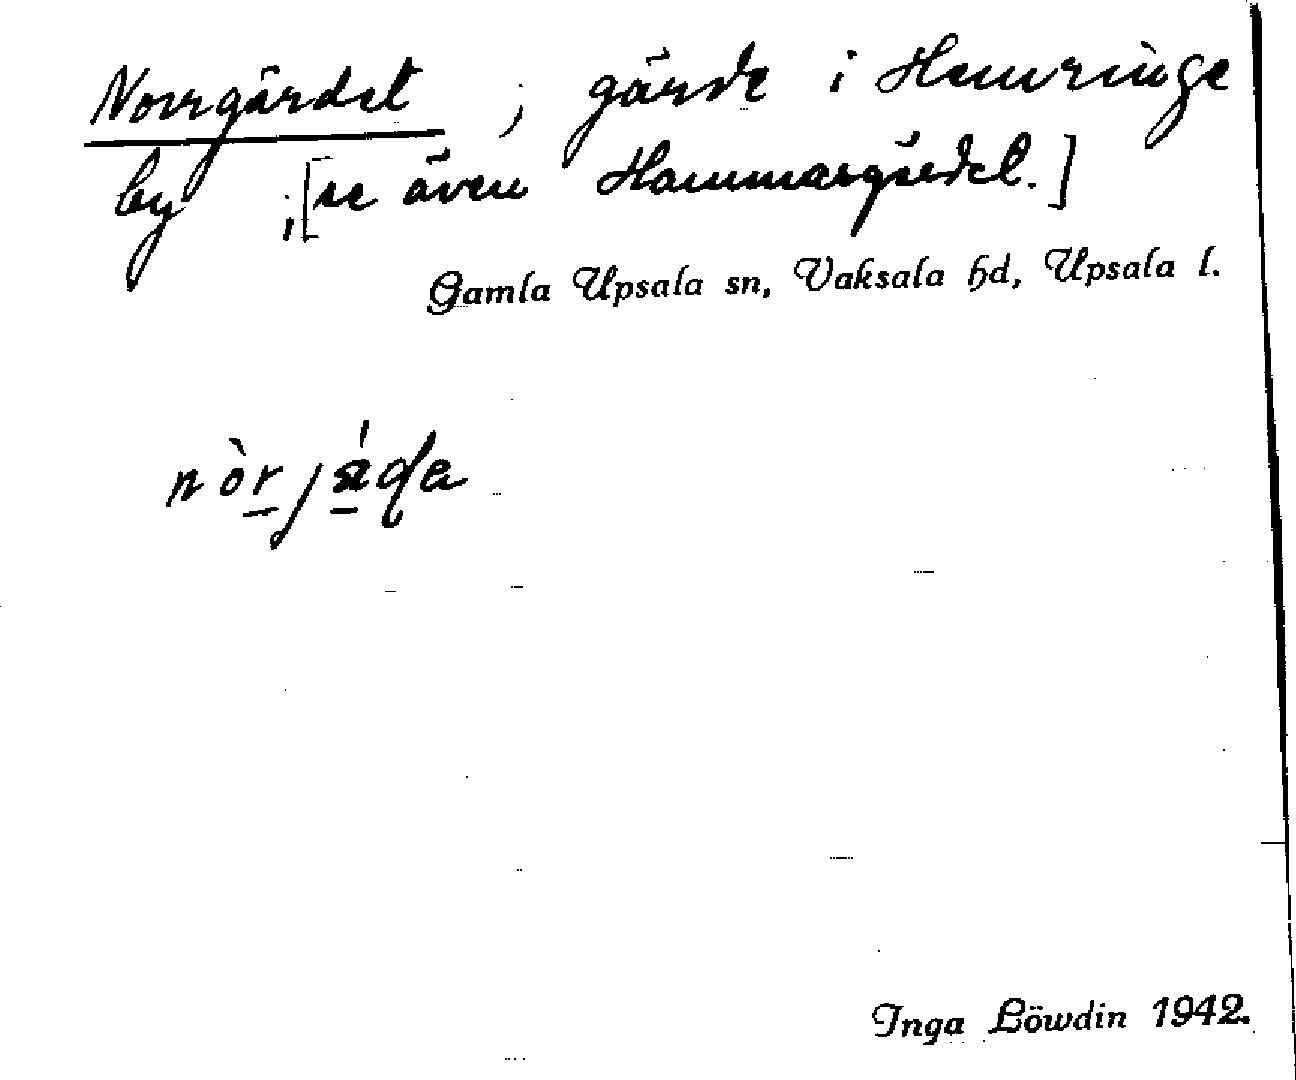 Norrgärdet, gärde i Hemringe
by; [se även Hammargärdet.]
Gamla Upsala sn, Vaksala hd, Upsala l.
Inga Löwdin 1942.